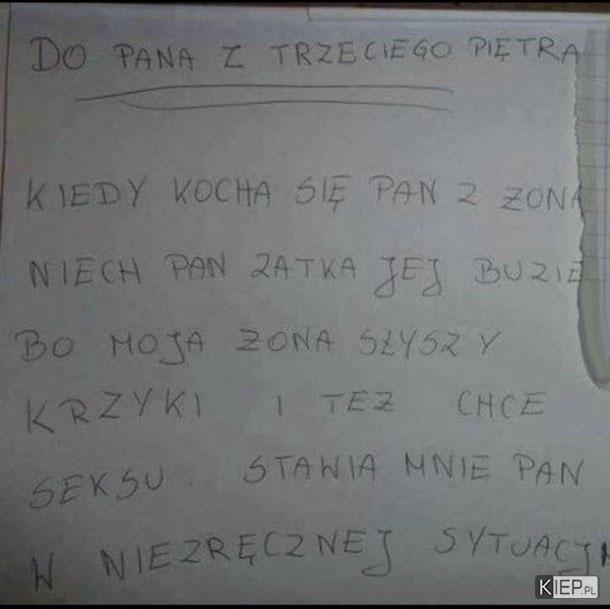 DO PANA Z TRZECIEGO PIĘTRA
KIEDY KOCHA SIĘ PAN Z ZONA
NIECH PAN ZATKA JEJ BUZIE
BO MOJA ZONA SŁYSZY
KRZYKI I TEZ CHCE
SEKSU. STAWIA MNIE PAN
W NIEZRĘCZNEJ SYTUACJI
KIEP.PL